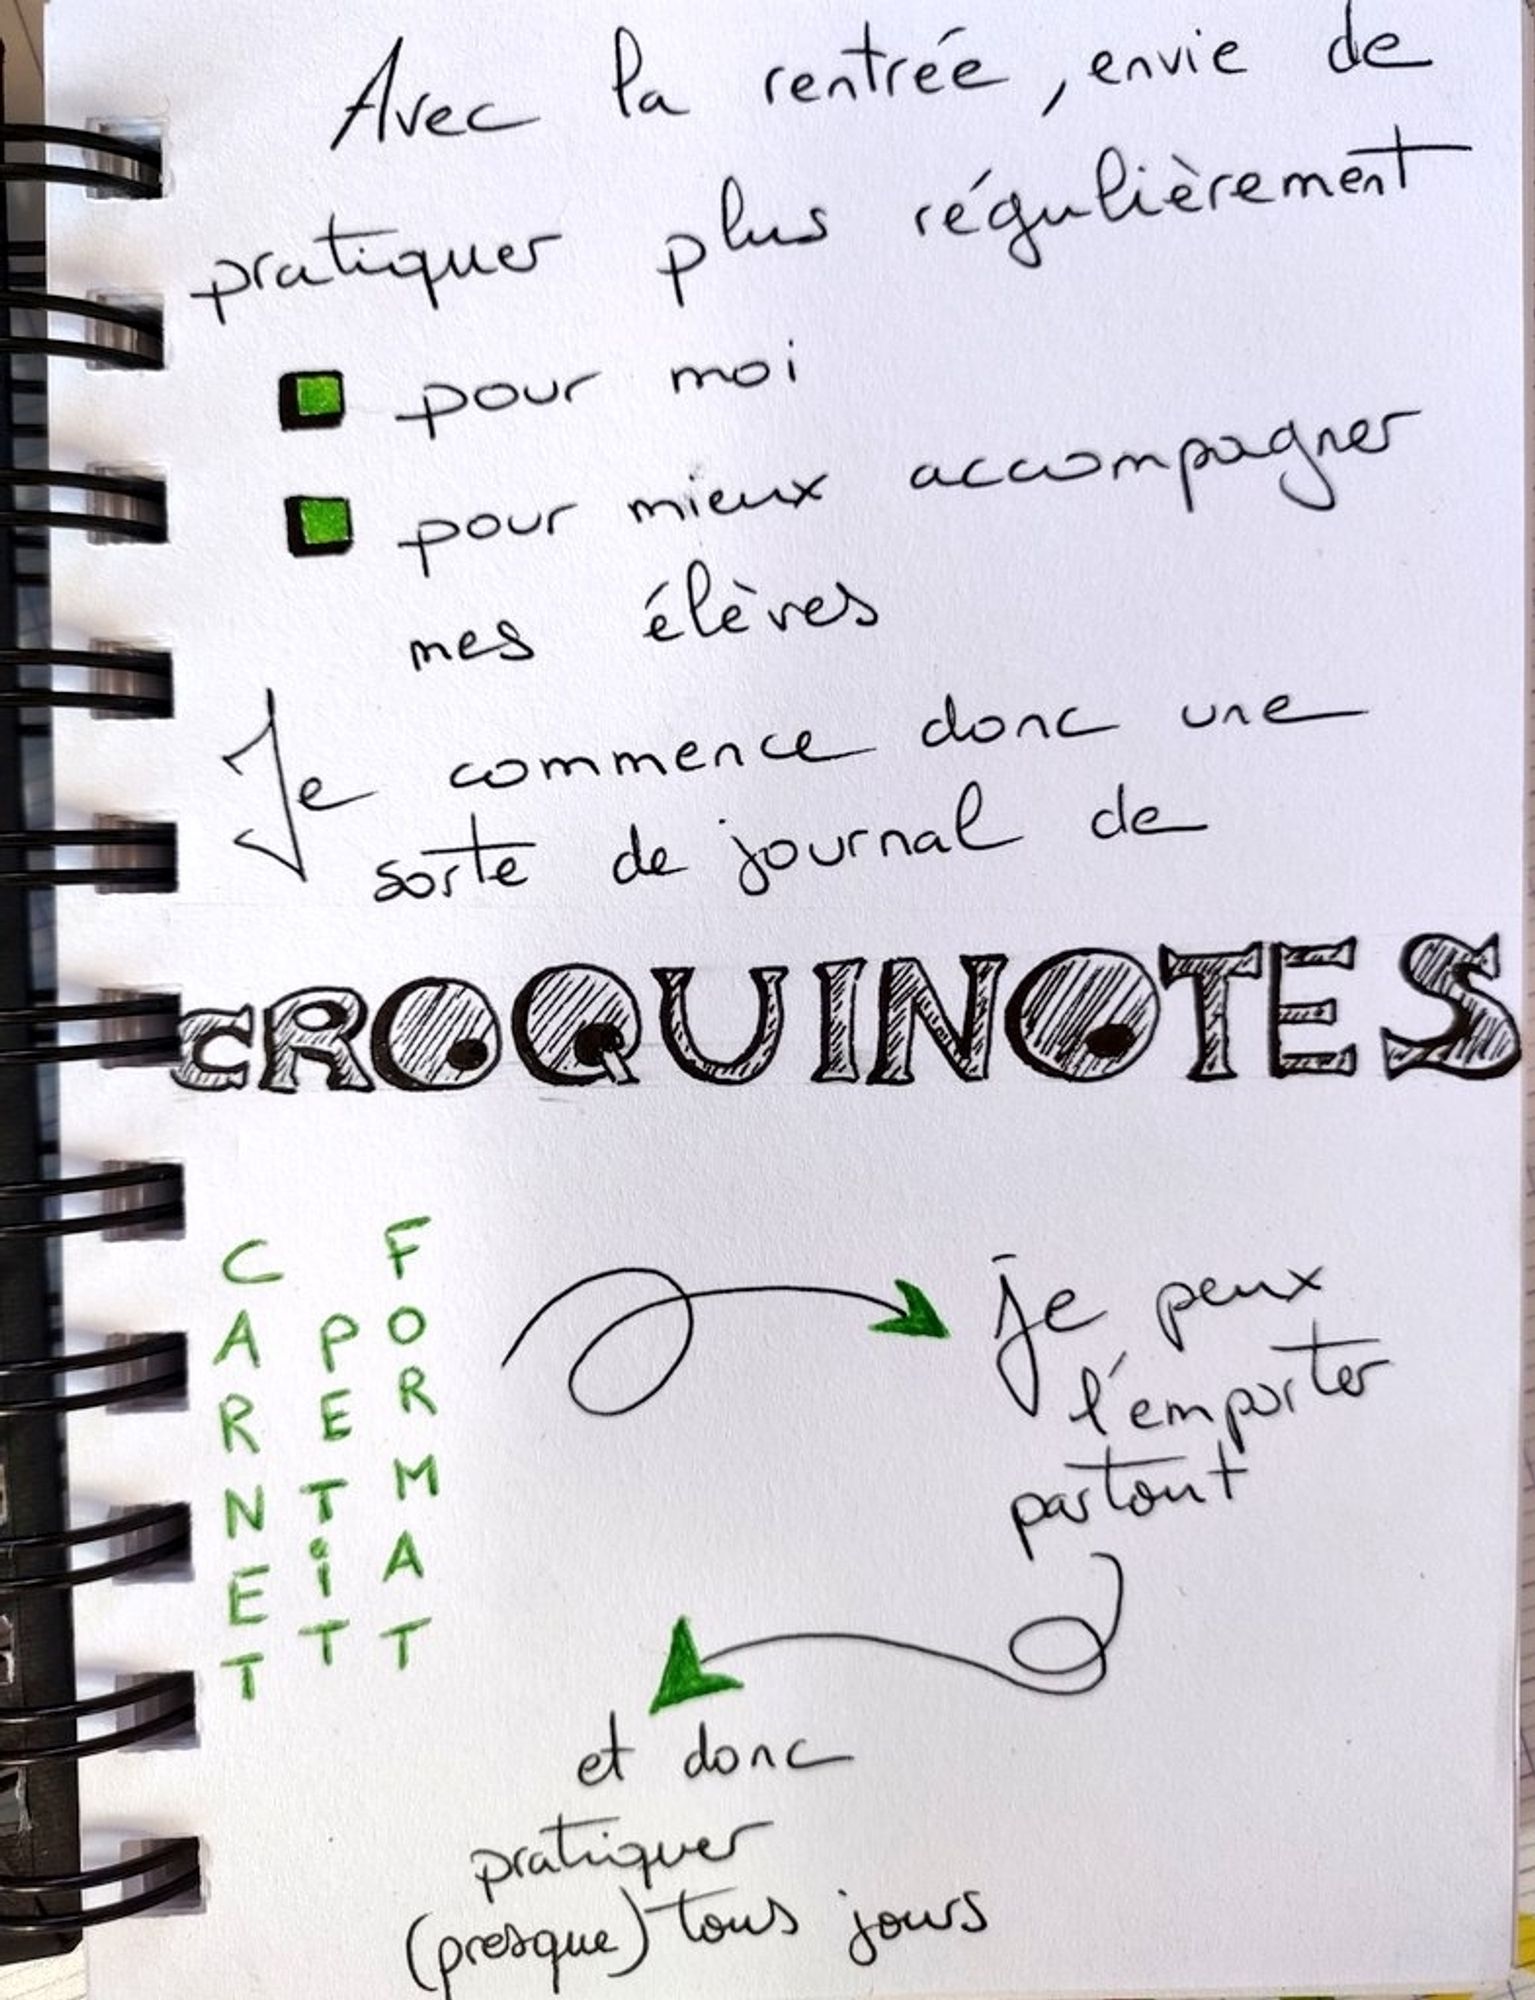 Avec la rentrée, envie de
pratiquer plus régulièrement
pour moi
pour mieux accompagner
mes élèves
Je commence donc une
sorte de journal de
CROQUINOTES
CARNET
PETiT
FORMAT
je peux
l'emporter
partout
et donc
pratiquer
(presque) tous jours